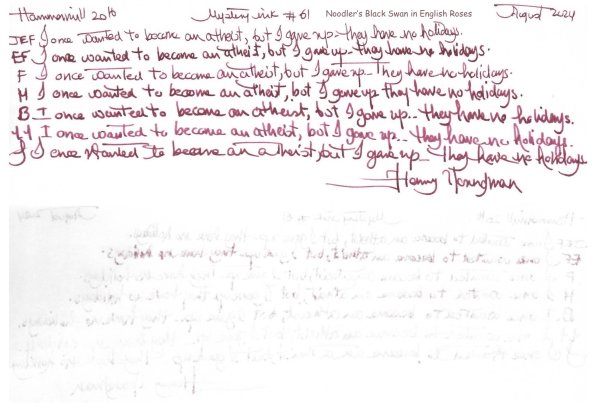 Hammermill 20lb Mystery ink #61 Noodler's Black Swan in English Roses August 2024
JEF I once wanted to become an atheist, but I gave up - they have no holidays.
EF I once wanted to become an atheist, but I gave up - they have no holidays.
F I once wanted to become an atheist, but I gave up - They have no holidays.
M I once wanted to become an atheist, but I gave up they have no holidays.
B I once wanted to become an atheist, but I gave up - they have no holidays.
I once wanted to become an atheist, but I gave up - they have no holidays.
I once wanted to become an atheist, but I gave up - They have no holidays
Henny Youngman